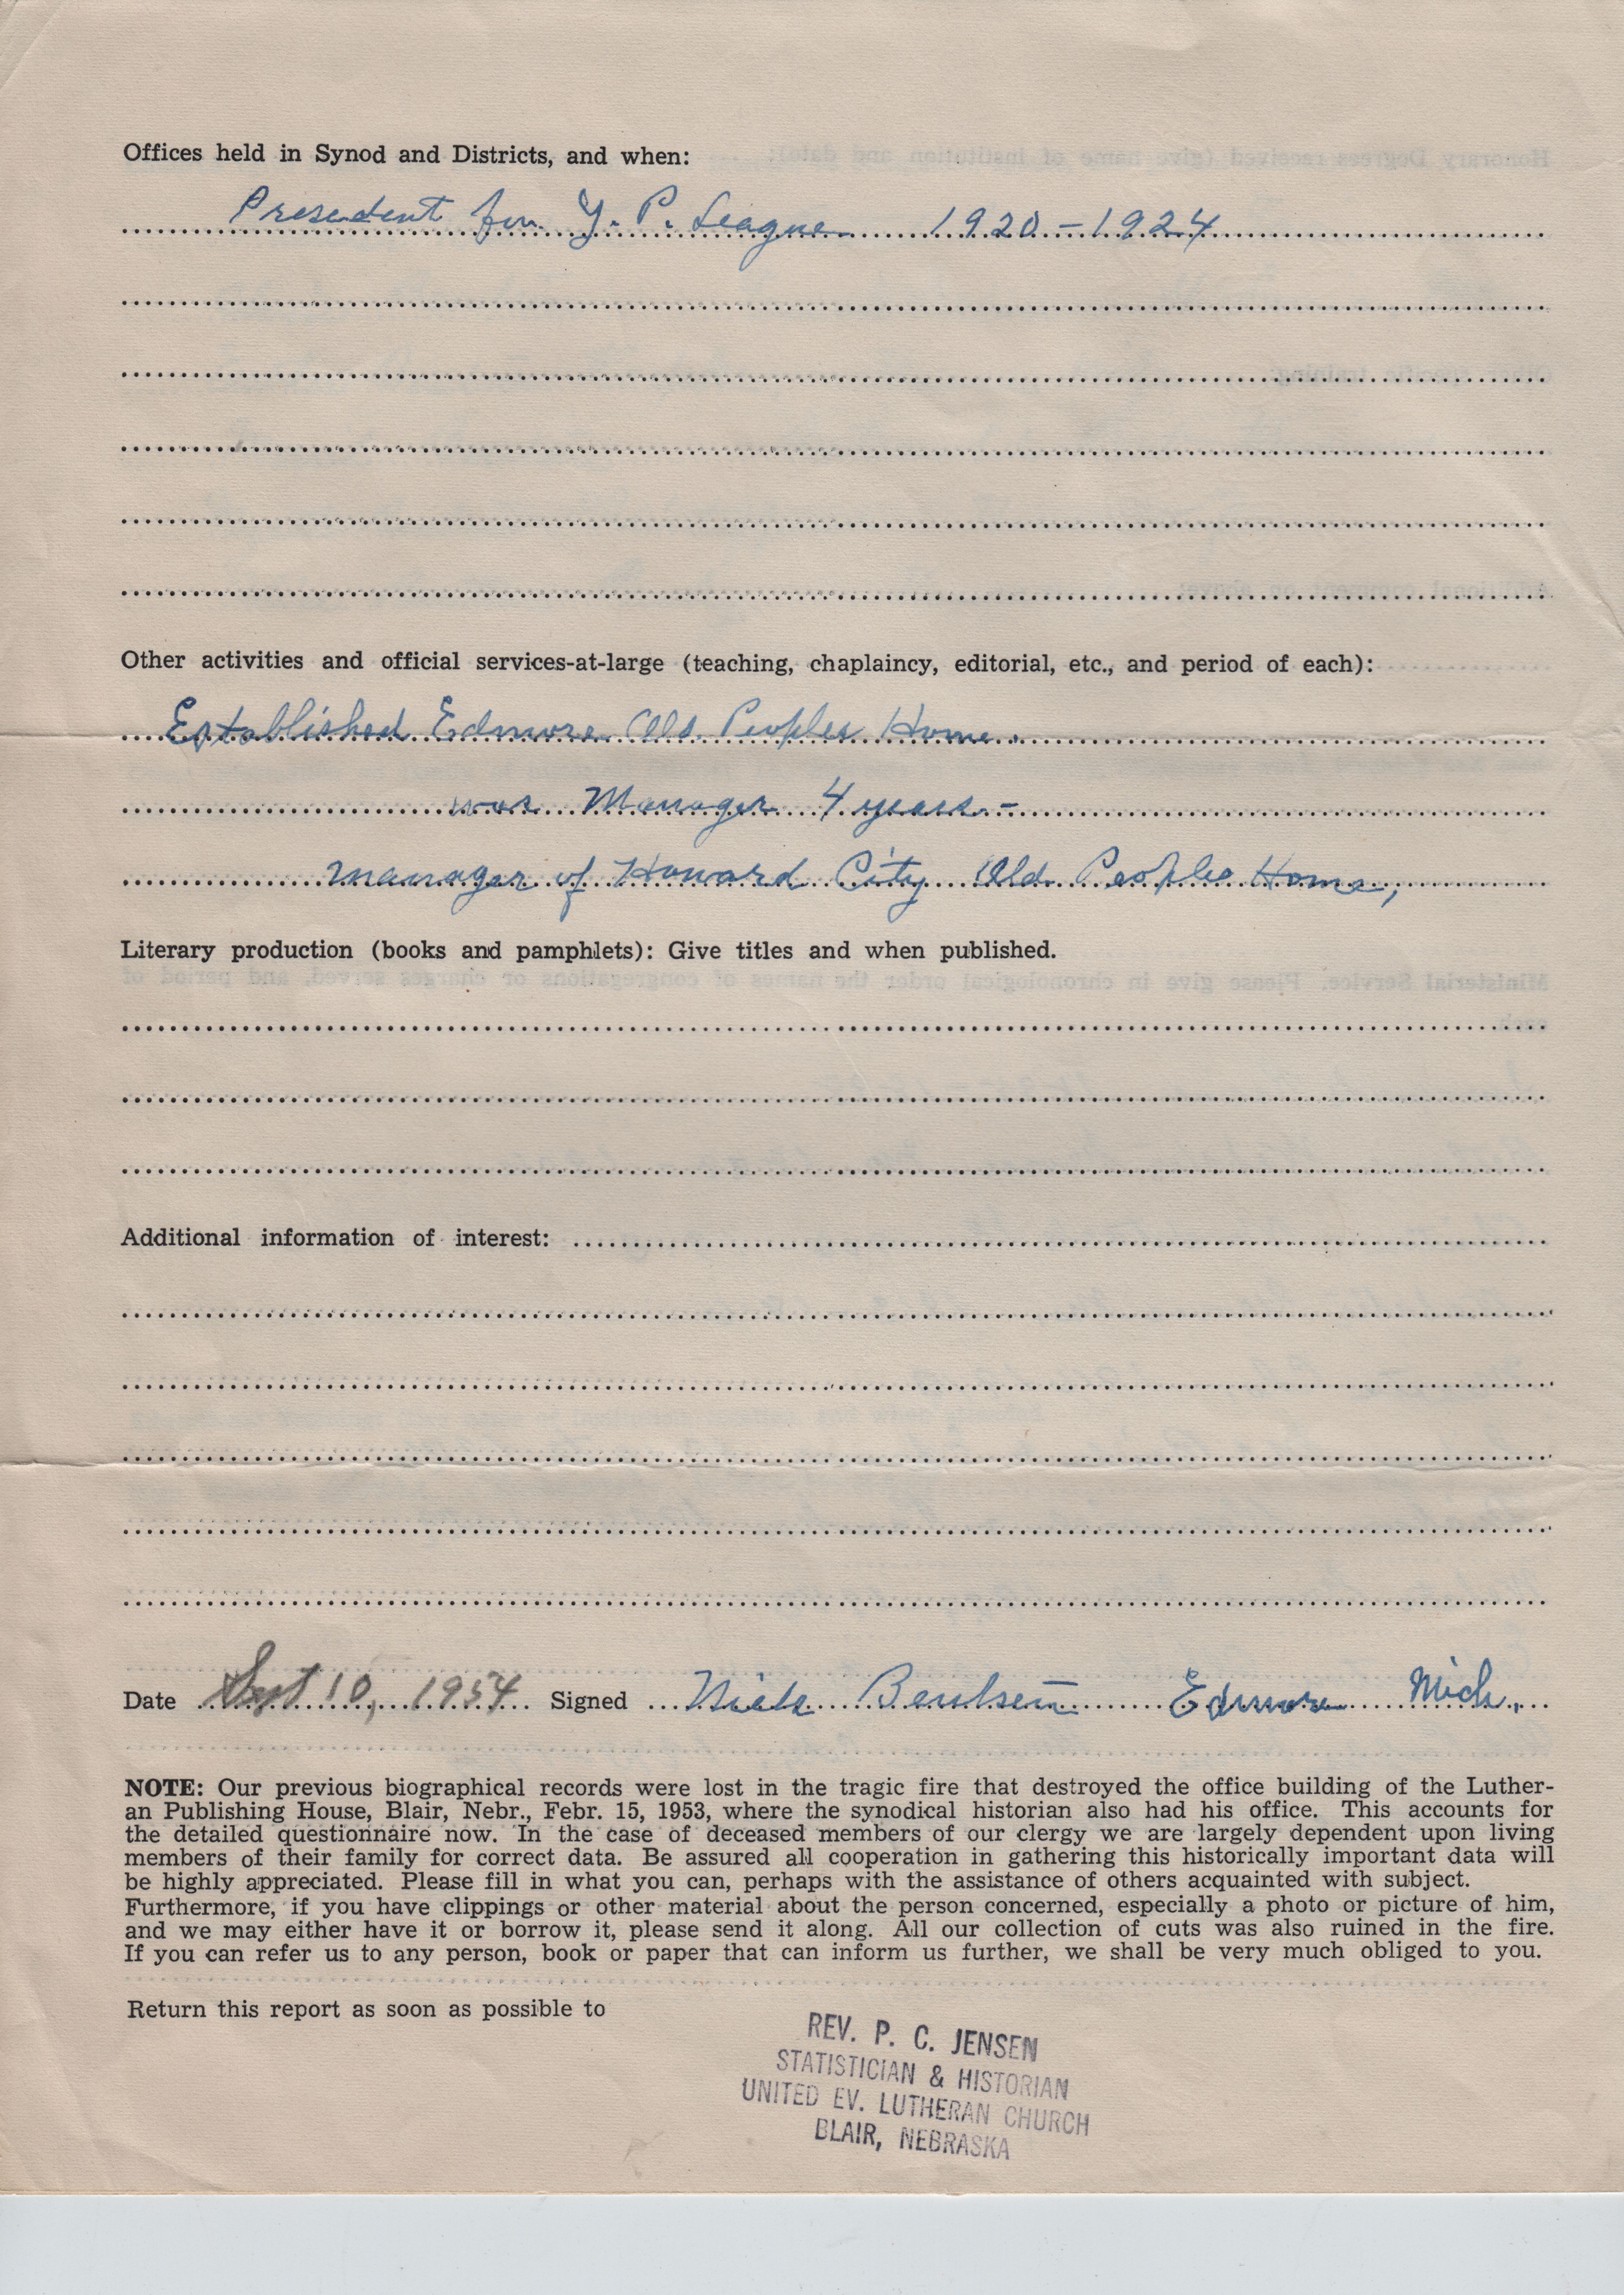 Offices held in Synod and Districts, and when:
President for Y. P. League 1920-1924
Other activities and official services-at-large (teaching, chaplaincy, editorial, etc., and period of each):
Established Edmore Old Peoples Home.
was Manager 4 years -
Manager of Howard City Old Peoples Home,
Literary production (books and pamphlets): Give titles and when published.
Additional information of interest:
Date Sept 10, 1954 Signed Niels Bentsen Edmore Mich.
NOTE: Our previous biographical records were lost in the tragic fire that destroyed the office building of the Luther-
an Publishing House, Blair, Nebr., Febr. 15, 1953, where the synodical historian also had his office. This accounts for
the detailed questionnaire now. In the case of deceased members of our clergy we are largely dependent upon living
members of their family for correct data. Be assured all cooperation in gathering this historically important data will
be highly appreciated. Please fill in what you can, perhaps with the assistance of others acquainted with subject.
Furthermore, if you have clippings or other material about the person concerned, especially a photo or picture of him,
and we may either have it or borrow it, please send it along. All our collection of cuts was also ruined in the fire.
If you can refer us to any person, book or paper that can inform us further, we shall be very much obliged to you.
Return this report as soon as possible to
REV. P. C. JENSEN
STATISTICIAN & HISTORIAN
UNITED EV. LUTHERAN CHURCH
BLAIR, NEBRASKA